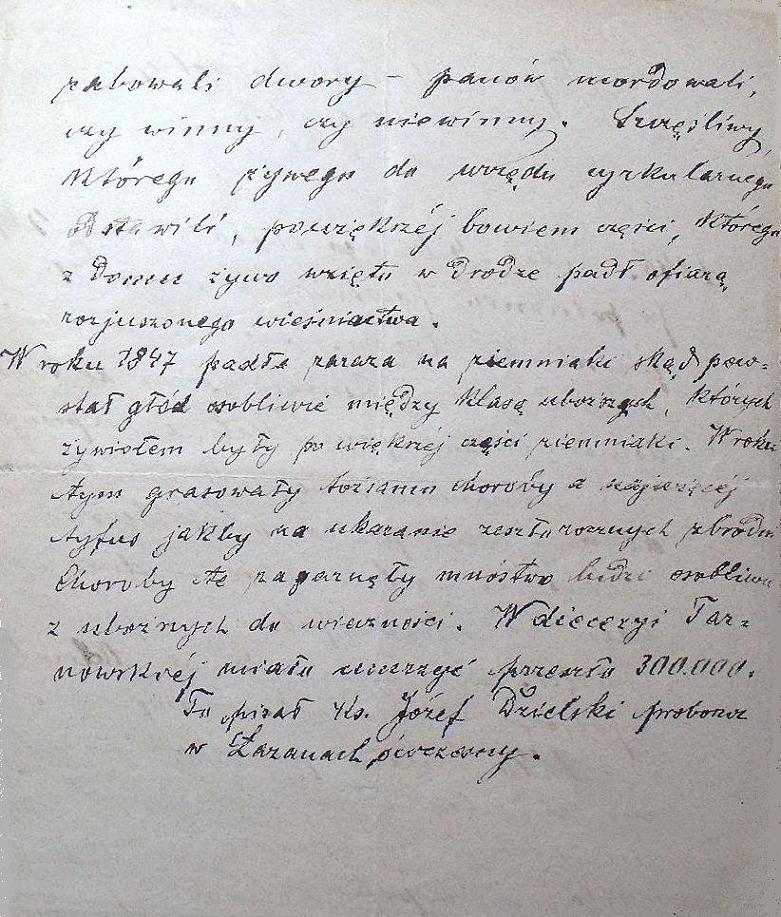 rabowali dwory – panów mordowali,
czy winny, czy niewinny. Szczęśliwy,
którego żywego do urzędu cyrkularnego
dstawili, powiększéj bowiem części, którego
z domu żywo wzięto w drodze padł ofiarą
rozjuszonego wieśniactwa.
W roku 1847 padła zaraza na ziemniaki skąd pow-
stał głód osobliwie między klasą uboższych, których
żywiołem były po większéj części ziemniaki. W roku
tym grasowały choroby a najwięcéj
tyfus jakby na ukaranie zeszłorocznych zbrodni
Choroby te zagarnęły mnóstwo ludzi osobliwie
z ubożnych do wieczności. W diecezyi Tar-
nowskiéj miało umrzyć przeszło 300.000.
To pisał Ks. Józef Dzielski proboszcz
w Łazanach ówczesny.